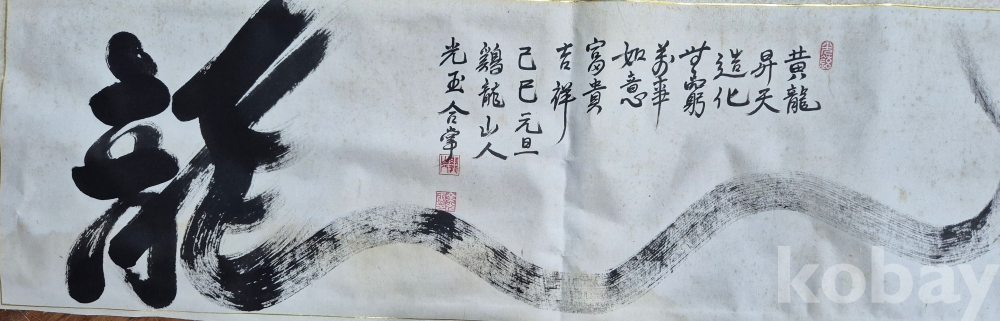 黄龍
昇天
造化
無窮
萬事
如意
富貴
吉祥
己巳元旦
鷄龍山人
光玉合掌
龍
kobay